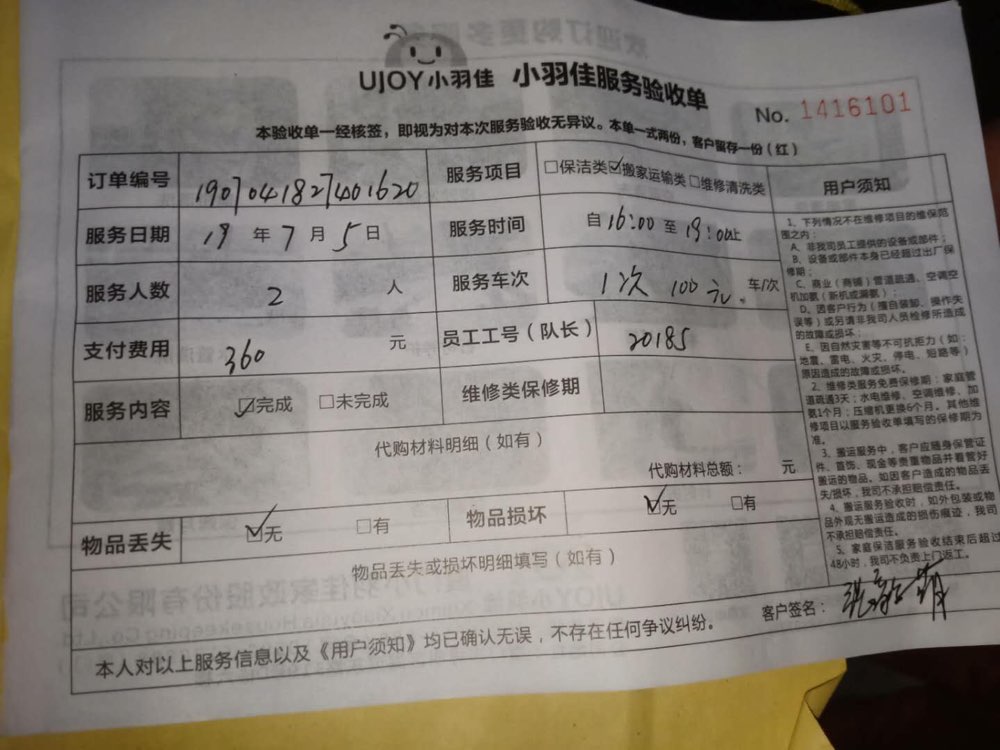 UJOY小羽佳 小羽佳服务验收单
No. 1416101
本验收单一经核签，即视为对本次服务验收无异议。本单一式两份，客户留存一份（红）
订单编号 1907041827401620 服务项目 □保洁类☑搬家运输类□维修清洗类
服务日期 19 年 7 月 5 日 服务时间 自 16:00 至 19:00止
服务人数 2 人 服务车次 1次 100元。车/次
支付费用 360 元 员工工号（队长） 20185
服务内容 ☑完成 □未完成 维修类保修期
代购材料明细（如有）
代购材料总额： 元
物品丢失 ☑无 □有 物品损坏 ☑无 □有
物品丢失或损坏明细填写（如有）
用户须知
1、下列情况不在维修项目的维保范
围之内：
A、非我司员工提供的设备或部件；
B、设备或部件本身已经超过出厂保
修期；
C、商业（商铺）管道疏通、空调空
机加氨（新机或漏氨）；
D、因客户行为（擅自装卸、操作失
误等）或另请非我司人员检修所造成
的故障或损坏；
E、因自然灾害等不可抗拒力（如：
地震、雷电、火灾、停电、短路等）
原因造成的故障或损坏。
2、维修类服务免费保修期：家庭管
道疏通3天；水电维修、空调维修、加
氨1个月；压缩机更换6个月。其他维
修项目以服务验收单填写的保修期为
准。
3、搬运服务中，客户应随身保管证
件、首饰、现金等贵重物品并看管好
搬运的物品。如因客户造成的物品丢
失/损坏，我司不承担赔偿责任。
4、搬运服务验收时，如外包装或物
品外观无搬运造成的损伤痕迹，我司
不承担赔偿责任。
5、家庭保洁服务验收结束后超过
48小时，我司不负责上门返工。
本人对以上服务信息以及《用户须知》均已确认无误，不存在任何争议纠纷。
客户签名：